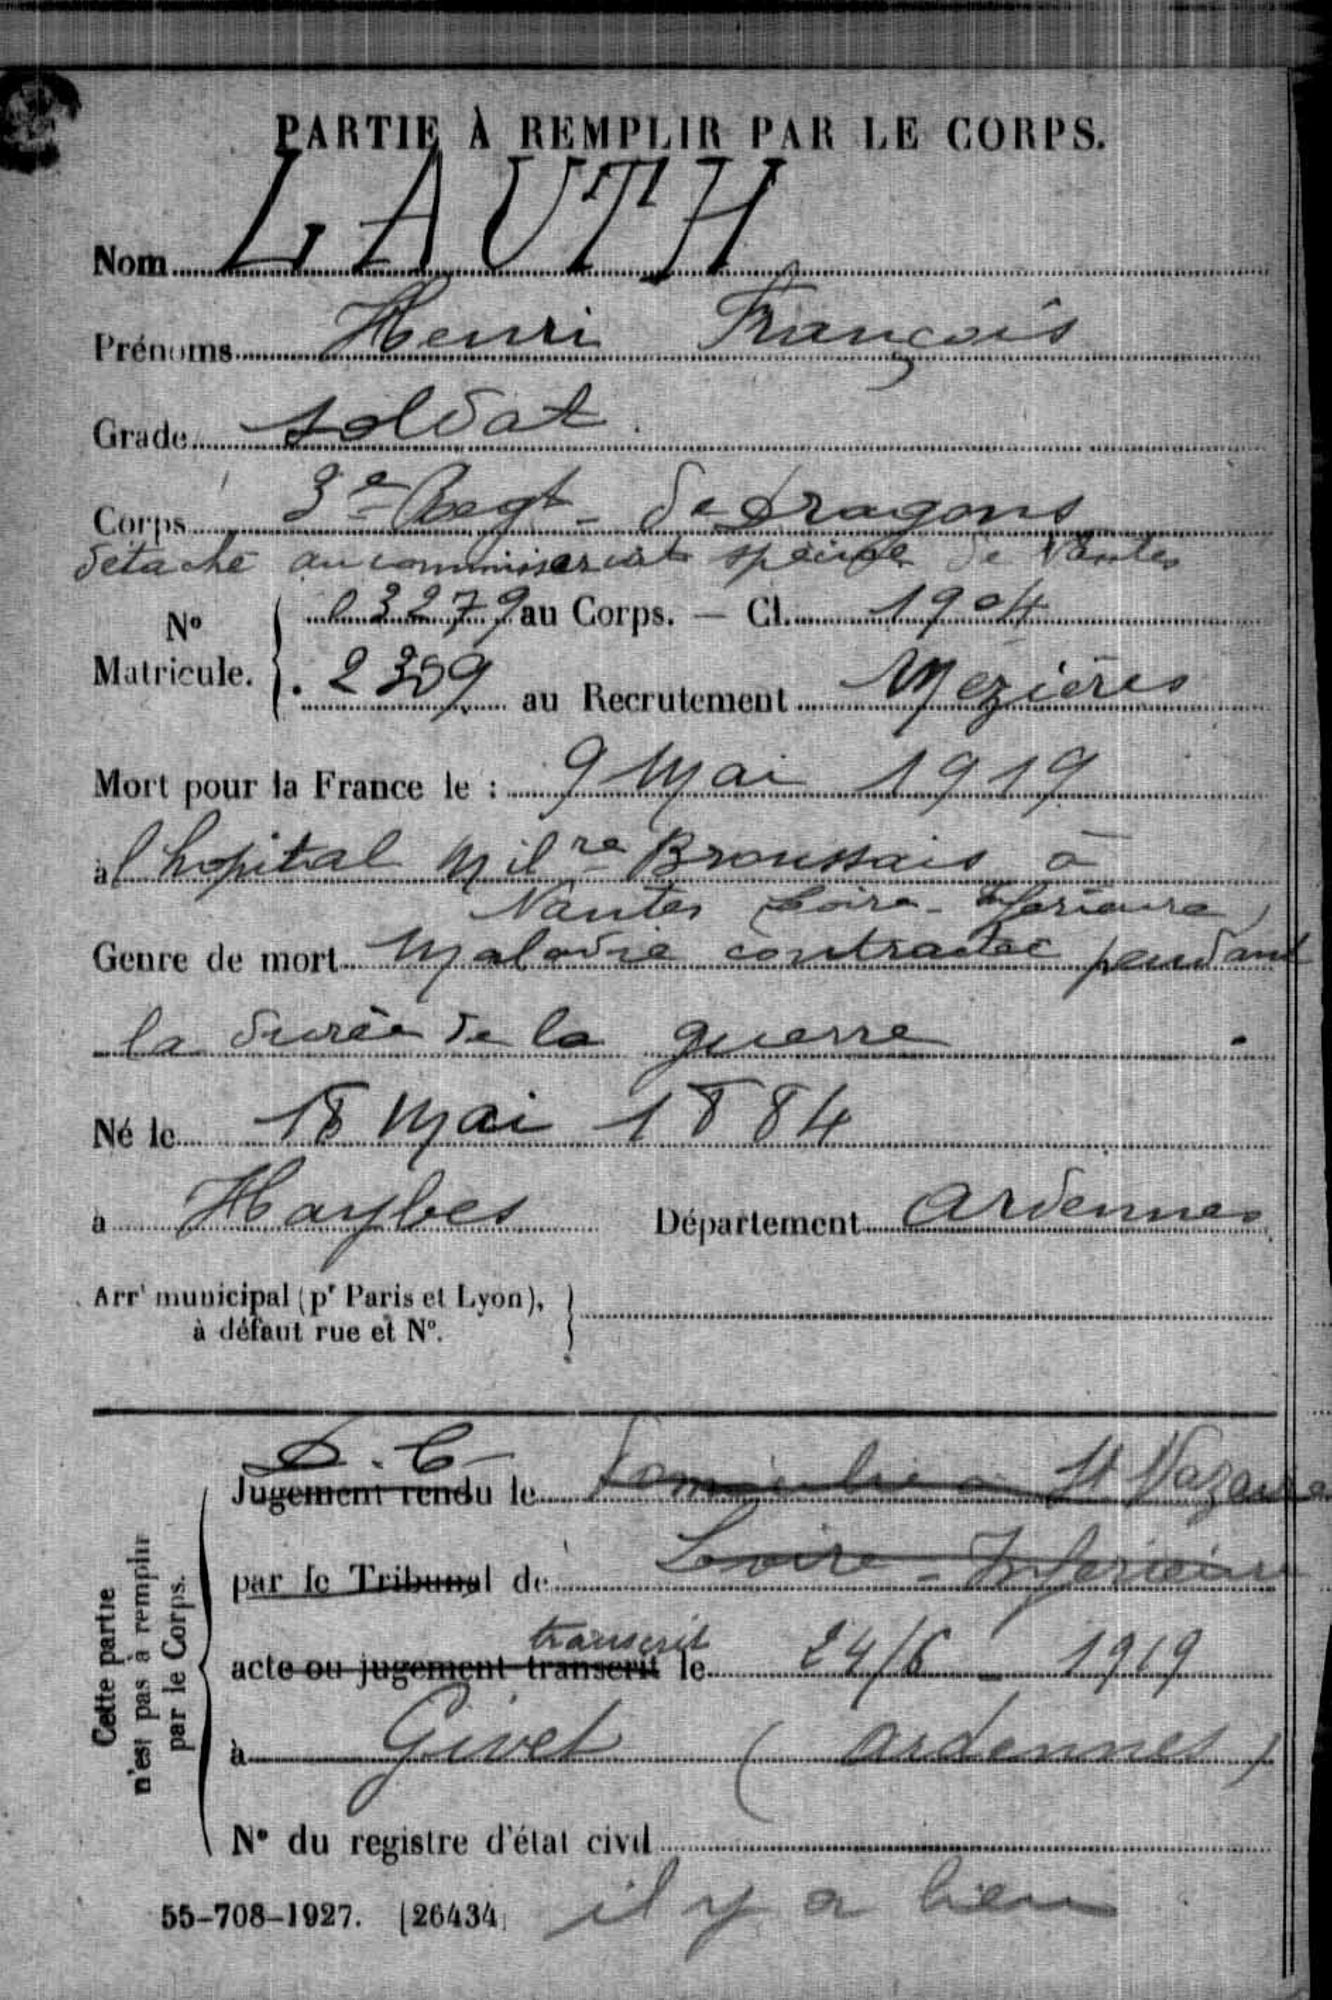 PARTIE À REMPLIR PAR LE CORPS.
Nom LAUTH
Prénoms Henri François
Grade soldat
Corps 3e Regt de Dragons
détaché au commissariat spécial de Nantes
No Matricule. 3279 au Corps. — Cl. 1904
2309 au Recrutement Mézières
Mort pour la France le : 9 Mai 1919
à l'hopital Milre Broussais à
Nantes (Loire-Inférieure)
Genre de mort Maladie contractée pendant
la durée de la guerre
Né le 18 Mai 1884
à Haybes Département Ardennes
Arrt municipal (pr Paris et Lyon),
à défaut rue et No.
Cette partie
n'est pas à remplir
par le Corps.
D.C.
Jugement rendu le domicilié à St Nazaire
par le Tribunal de Loire-Inférieure
transcrit
acte ou jugement transcrit le 24/6 - 1919
à Givet (Ardennes)
No du registre d'état civil
55-708-1927. [26434] il y a lieu